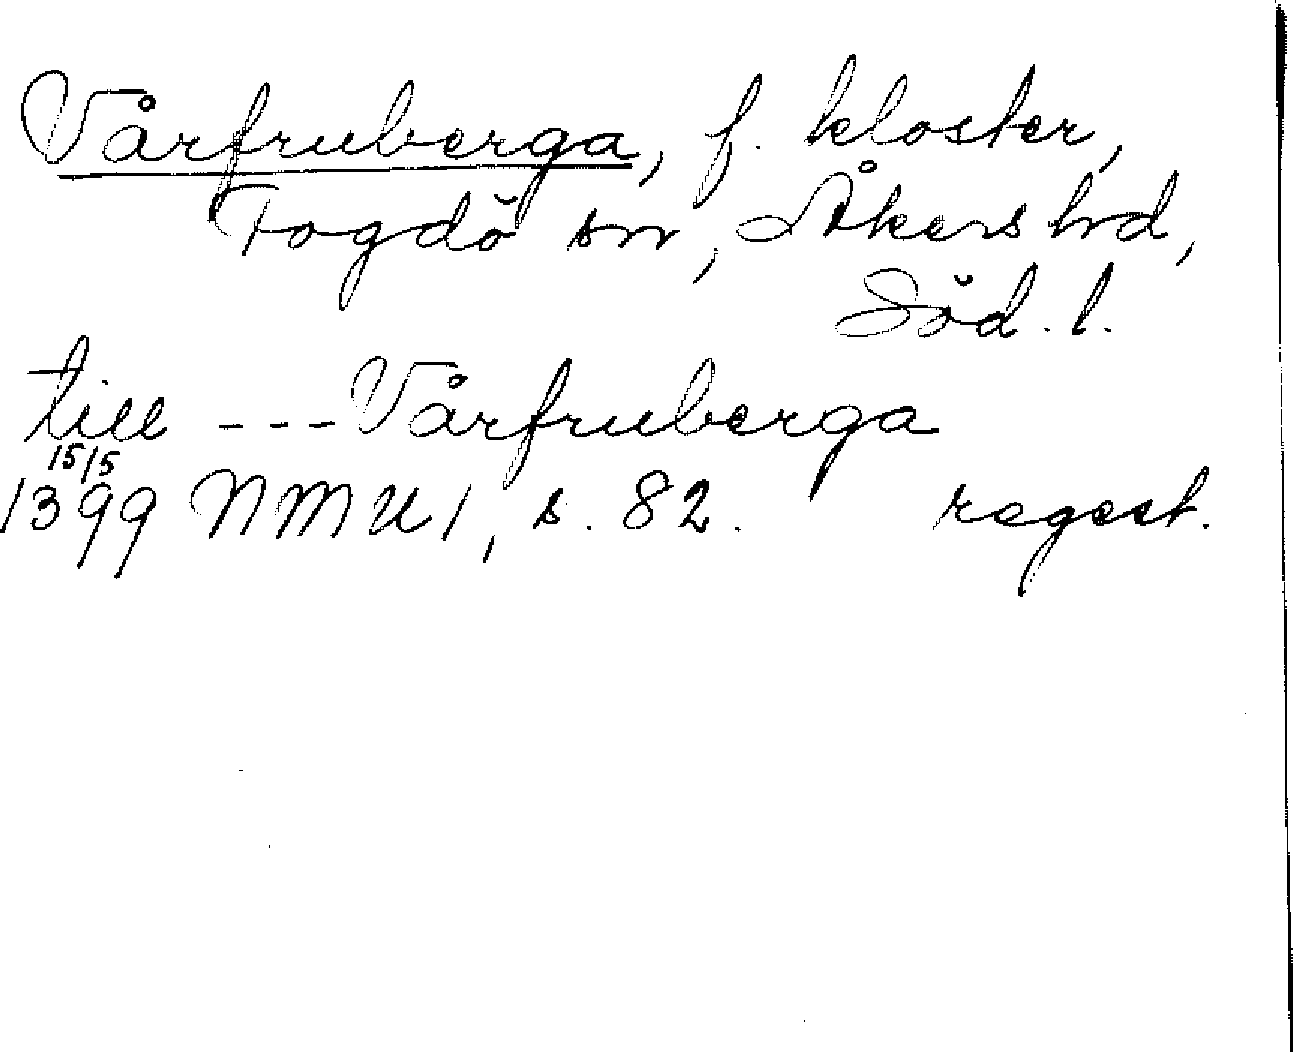 Vårfruberga, f. kloster,
Fogdö sn, Åkers hd,
Söd. l.
till --- Vårfruberga
15/5
1399 NMU 1, s. 82. regest.